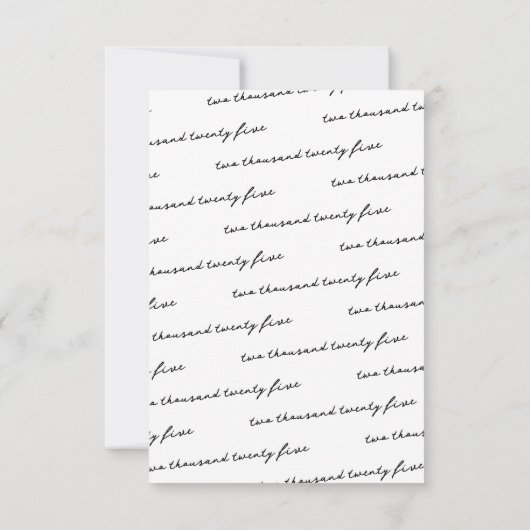 two thousand twenty
two thousand
thousand twenty five
two thousand twenty five
ve
two thousand
thousand twenty five
two thousand twenty five
ive
two thousand
thousand twenty five
two thousand twenty five
five
two thousan
thousand twenty five
two thousand twenty five
five
two thousa
o thousand twenty five
two thousand twenty five
y five
two thous
wo thousand twenty five
two thousand twenty five